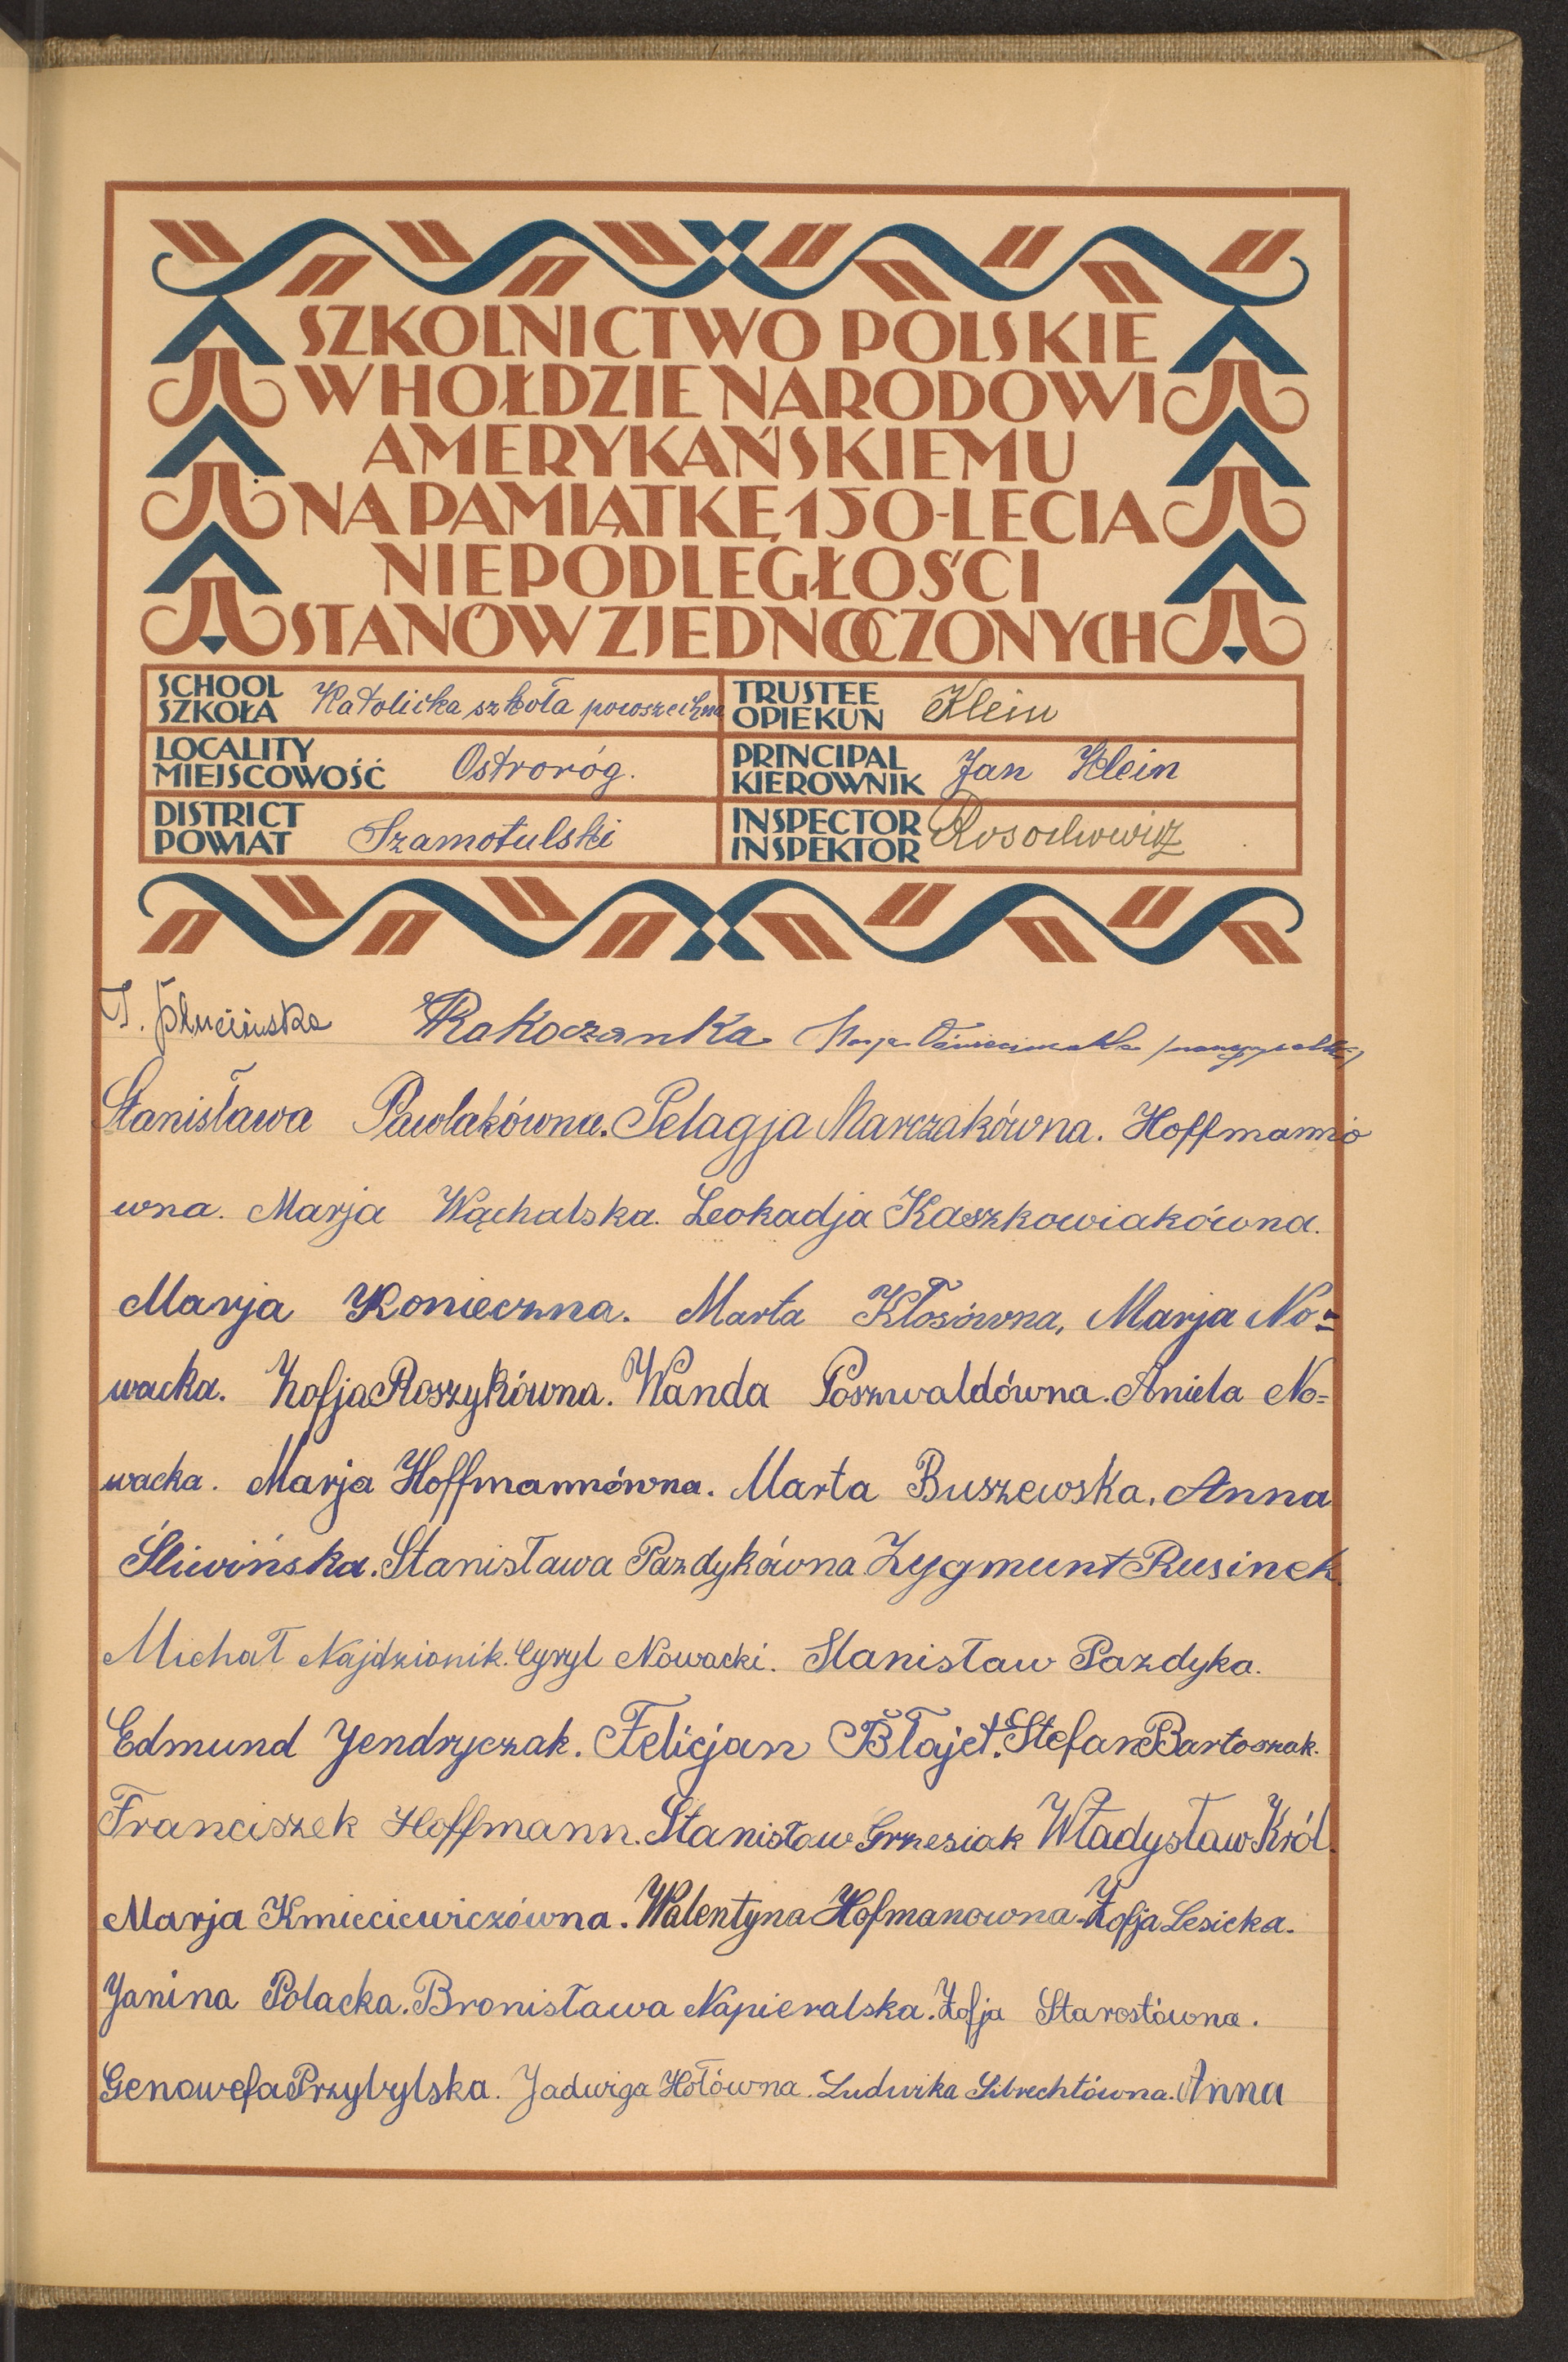 SZKOLNICTWO POLSKIE
W HOŁDZIE NARODOWI
AMERYKAŃSKIEMU
NA PAMIĄTKĘ 150-LECIA
NIEPODLEGŁOŚCI
STANÓW ZJEDNOCZONYCH
SCHOOL
SZKOŁA Katolicka szkoła powszechna
TRUSTEE
OPIEKUN Klein
LOCALITY
MIEJSCOWOŚĆ Ostroróg.
PRINCIPAL
KIEROWNIK Jan Klein
DISTRICT
POWIAT Szamotulski
INSPECTOR
INSPEKTOR
Rakoczanka
Stanisława Pawlakówna. Pelagja Marczakówna. Hoffmannó
wna. Marja Wąchalska. Leokadja Kaszkowiakówna.
Marja Konieczna. Marta Kłosówna, Marja No=
wacka. Zofja Roszykówna. Wanda Poszwaldówna. Aniela No=
wacka. Marja Hoffmannówna. Marta Buszewska. Anna
Śliwińska. Stanisława Pazdykówna Zygmunt Rusinek.
Michał Najdzionik. Cyryl Nowacki. Stanisław Pazdyka.
Edmund Jendryczak. Felicjan Błajet. Stefan Bartoszak.
Franciszek Hoffmann. Stanisław Grzesiak Władysław Król.
Marja Kmieciewiczówna. Walentyna Hofmanowna. Zofja Lesicka.
Janina Polacka. Bronisława Napieralska. Zofja Starostówna.
Genowefa Przybylska. Jadwiga Hołówna. Ludwika Librechtówna. Anna